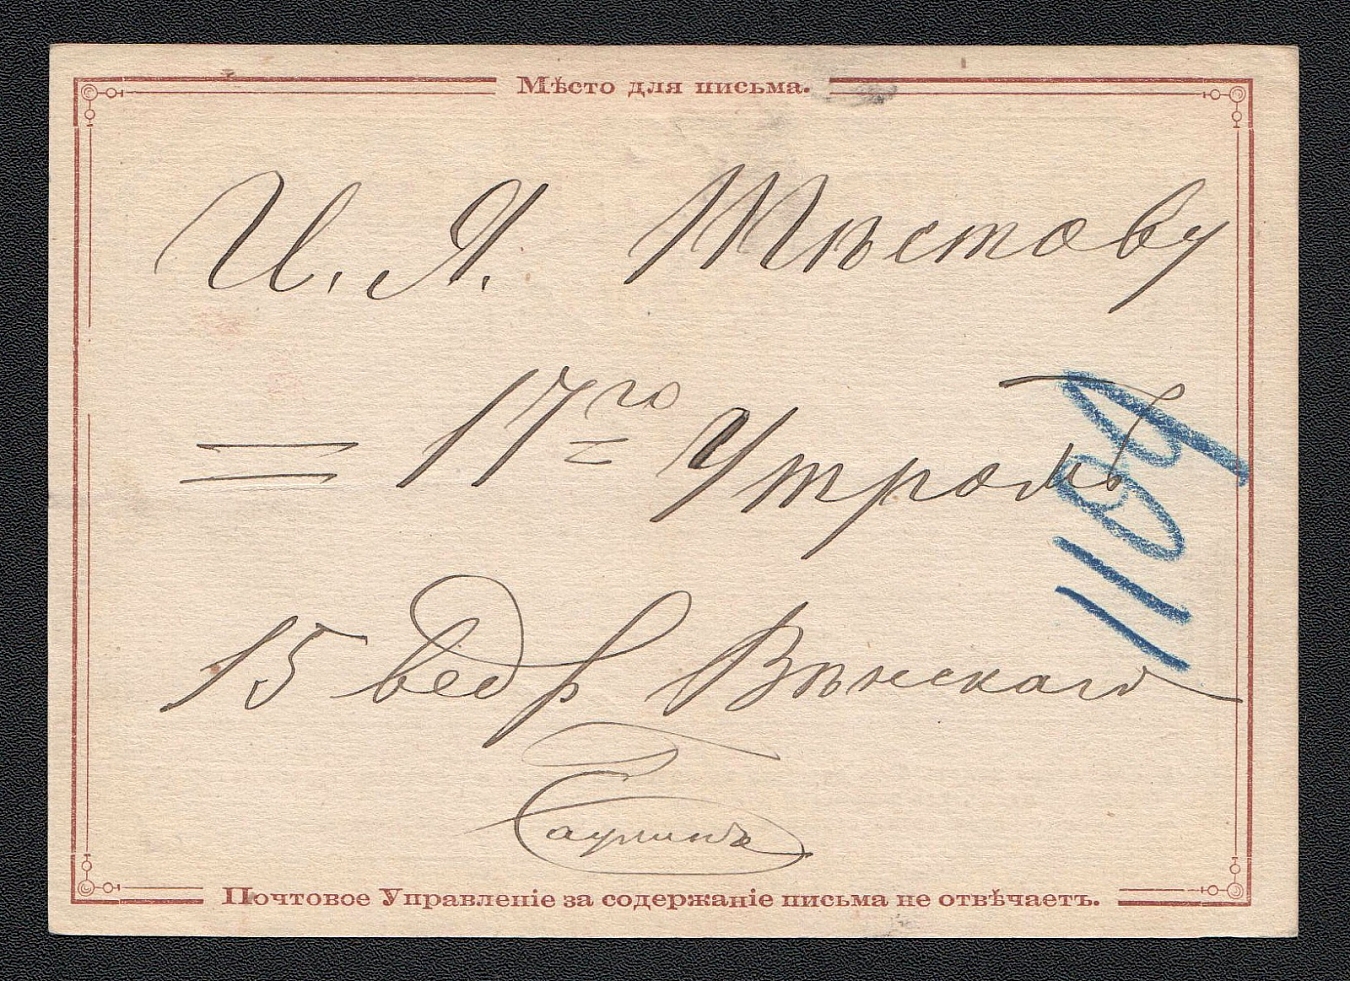 Мѣсто для письма.
И. Я. Тѣстову
= 17го Утромъ
1109
15 ведр Вѣнскаго
Почтовое Управленіе за содержаніе письма не отвѣчаетъ.